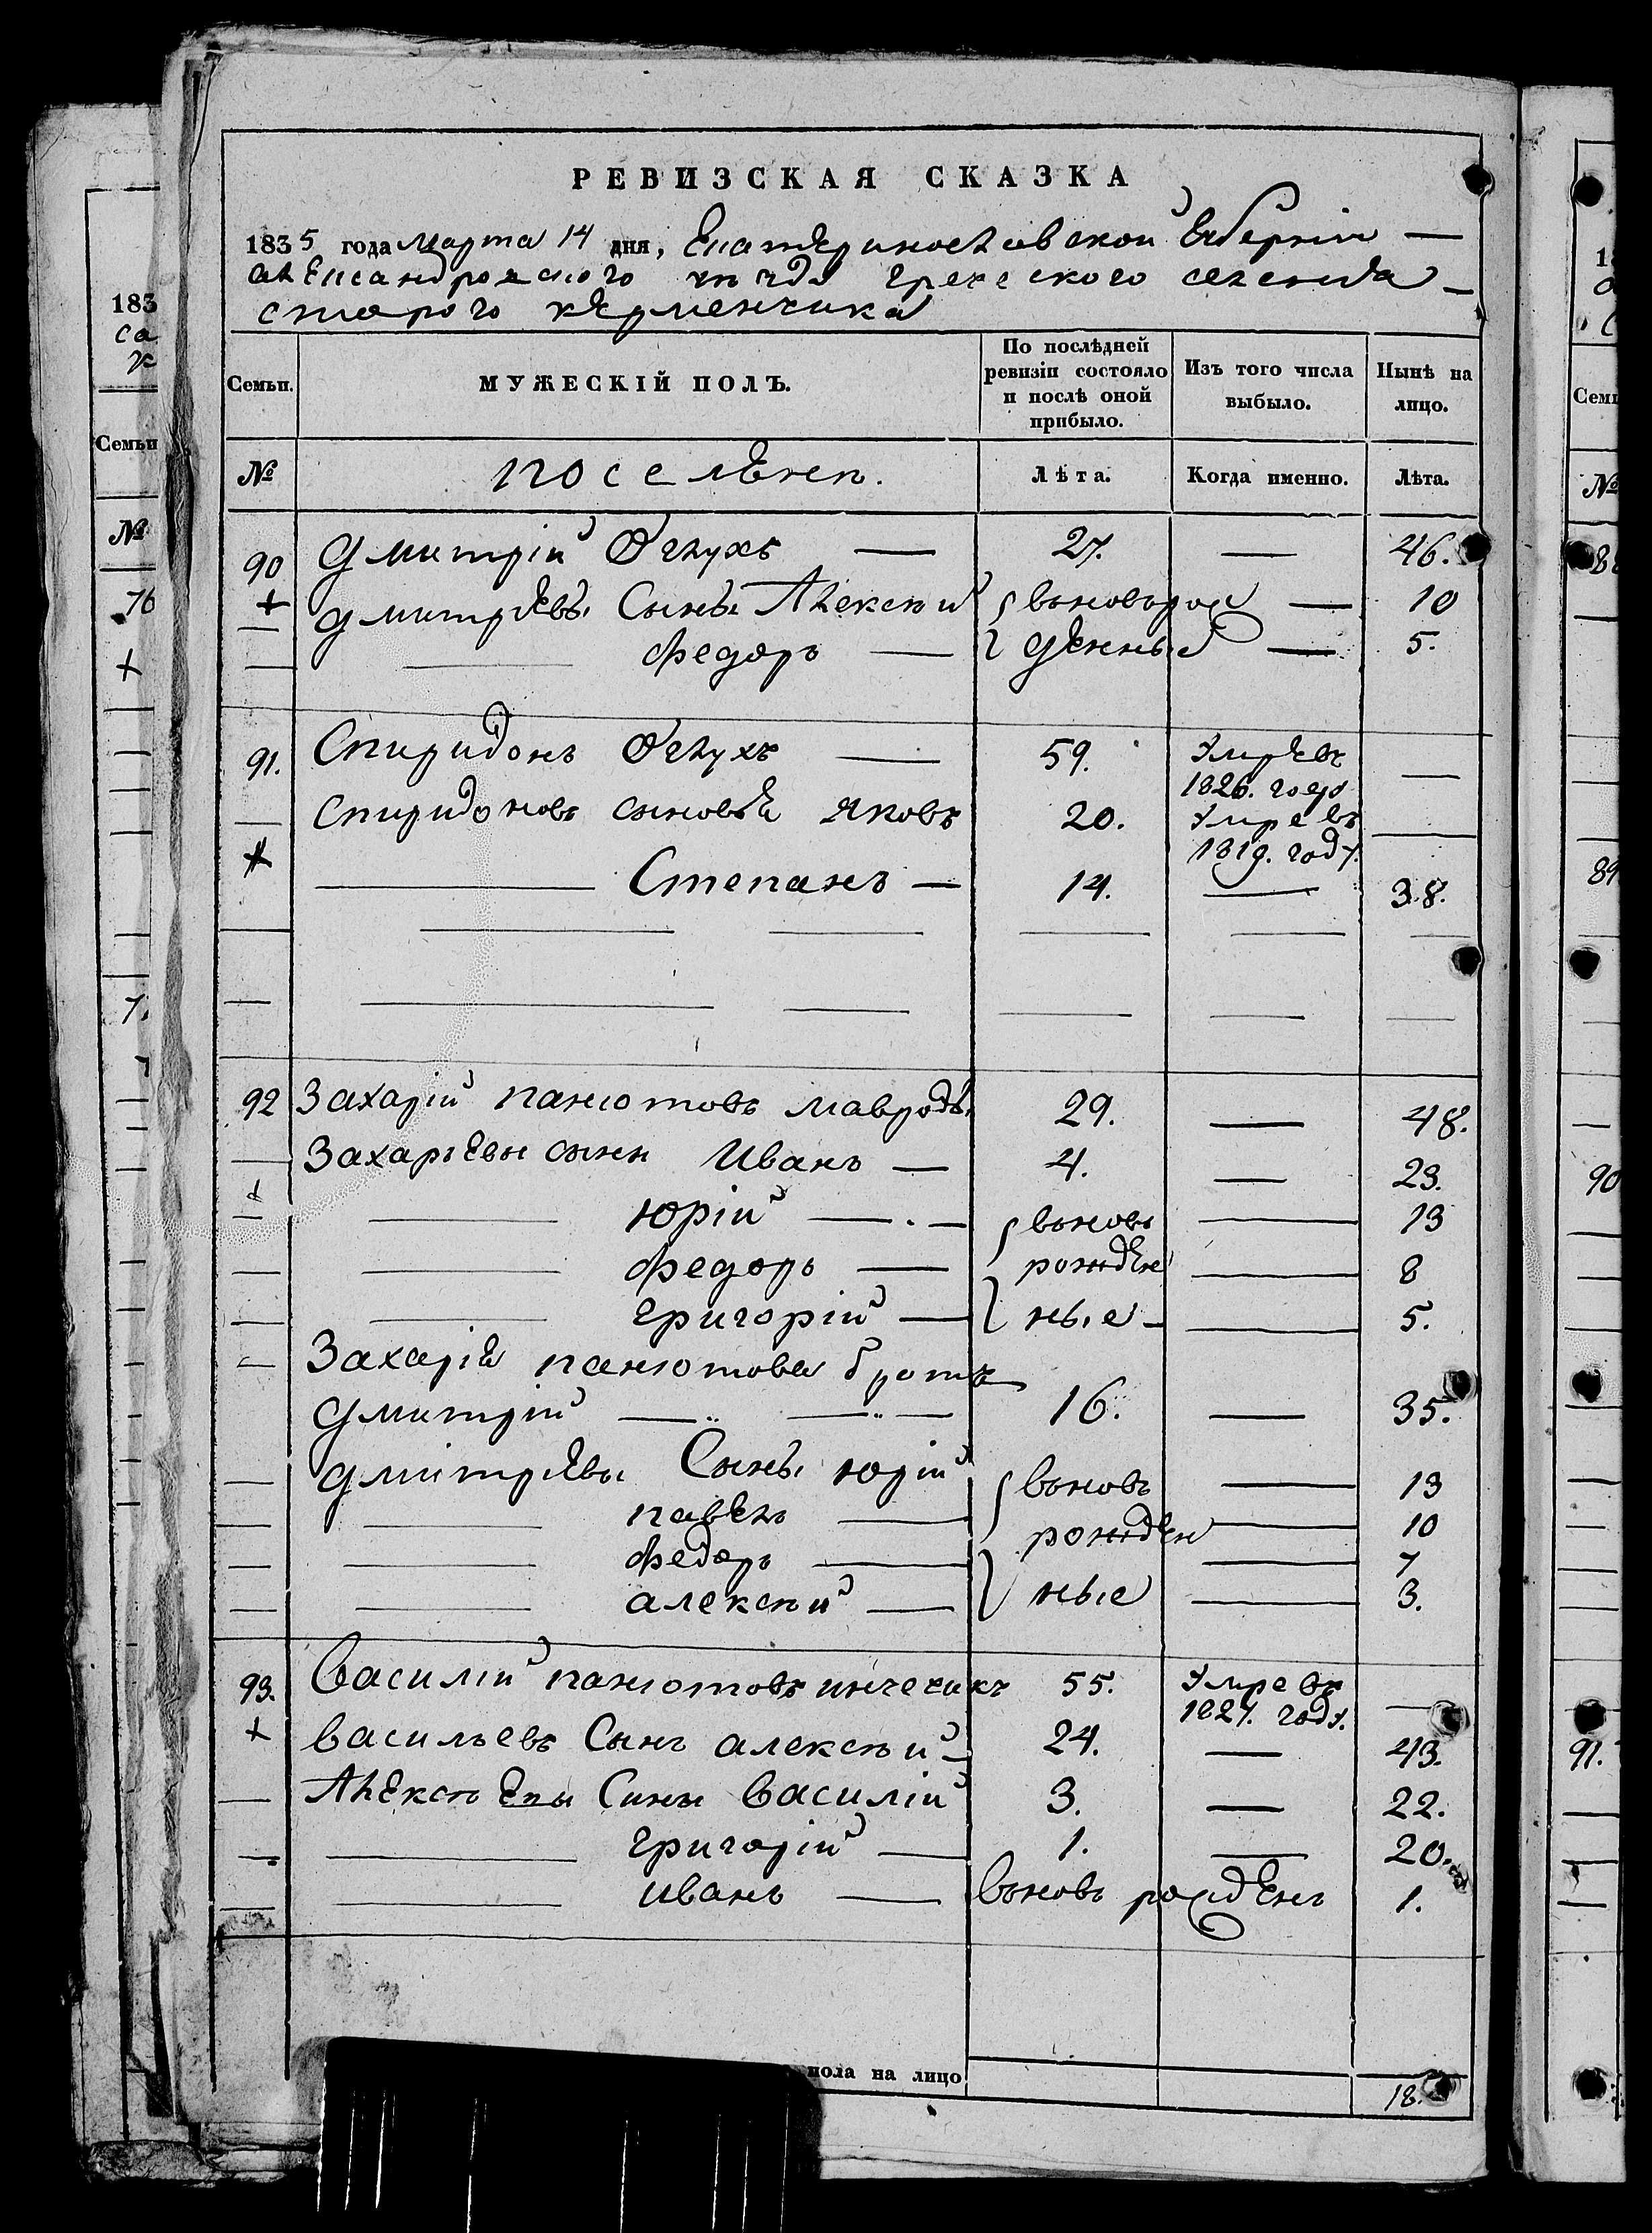 РЕВИЗСКАЯ СКАЗКА
1835 года марта 14 дня, Екатеринославской Губерніи —
александровского уѣзда греческого селенія
старого керменчика
Семьи. МУЖЕСКІЙ ПОЛЪ. По послѣдней ревизіи состояло и послѣ оной прибыло. Изъ того числа выбыло. Нынѣ на лицо.
№ поселянъ. Лѣта. Когда именно. Лѣта.
90 Дмитрій Оглухъ — 27. — 46.
Дмитріевы Сыны Алексѣй вьноврож — 10
— Федоръ — денные — 5.
91. Спиридонъ Оглухъ — 59. Умре въ 1826. году —
— Спиридоновъ сыновья Яковъ 20. Умре въ 1819. году. —
— Степанъ — 14. — 38.
92 Захарій панютовъ мавроды 29. — 48.
— Захарьевы сыны Иванъ — 4. — 23.
— Юрій — вьновь — 13
— Федоръ — рожден — 8
— Григорій — ные — 5.
— Захарія панютова братъ
Дмитрій — 16. — 35.
— Дмитріевы Сыны Юрій вьновь — 13
— павелъ — рожден — 10
— Федоръ — 7
— алексѣй — ные — 3.
93. Василій панютовъ инчечикъ 55. Умре въ 1827. году. —
Васильевъ Сынъ алексѣй — 24. — 43.
— Алексѣевы Сыны Василій 3. — 22.
— Григорій — 1. — 20.
— Иванъ — вьновь рожденъ 1.
пола на лицо 18.
183
са
Семьи
№
76
7.
Семь
№
89
90
91.